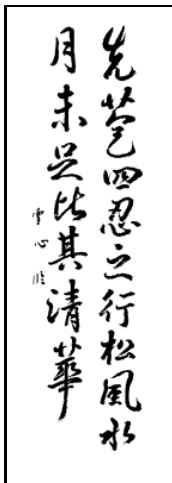 先苞四忍之行松風水
月未足比其清華
雪心臨